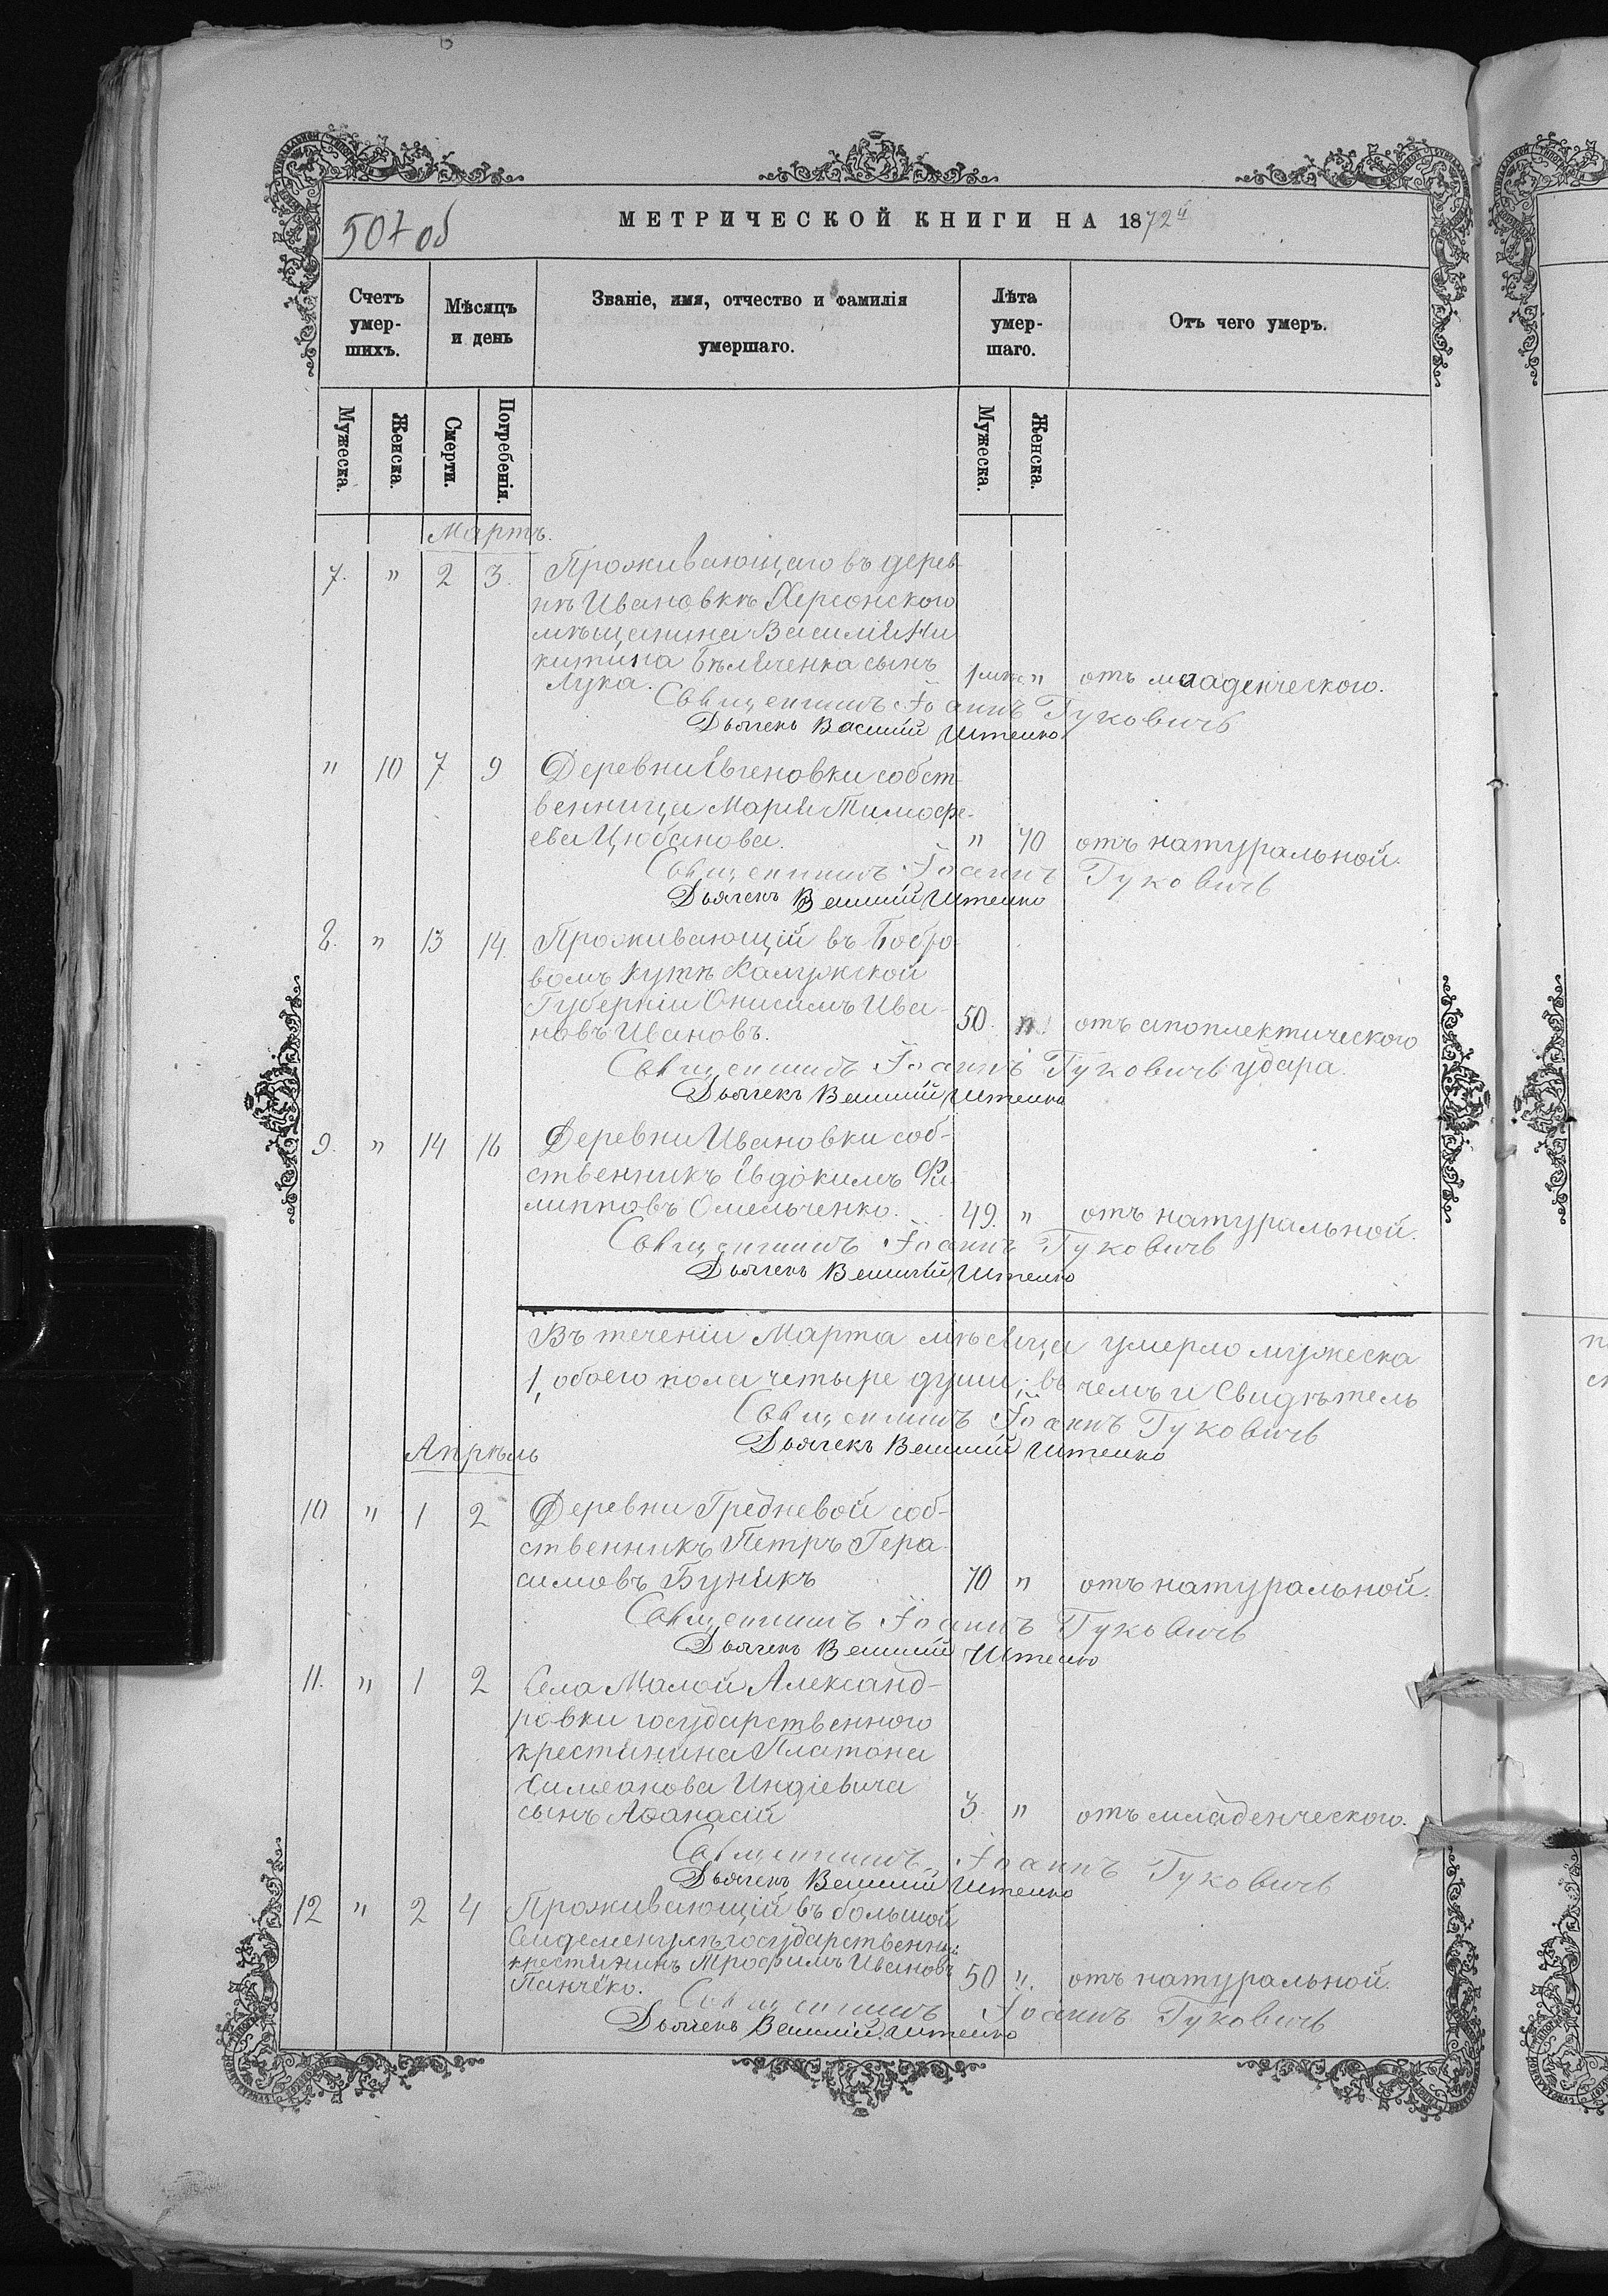 507 об
МЕТРИЧЕСКОЙ КНИГИ НА 1872й
Счетъ умер-шихъ.
Мѣсяцъ и день
Званіе, имя, отчество и фамилія умершаго.
Лѣта умер-шаго.
Отъ чего умеръ.
Мужеска.
Женска.
Смерти.
Погребенія.
Мужеска.
Женска.
Мартъ.
7. " 2 3. Проживающаго въ дерев-
нѣ Ивановкѣ Херсонского
мѣщанина Василія Ни
китина Бѣляченка сынъ
Лука. 1 мѣс. " отъ младенческого.
Священникъ Іоаннъ Гуковичъ
Дьячекъ Василій Штенко
" 10 7 9 Деревни Евгеновки собст-
венница Марія Тимофе-
ева Цюбанова. " 70 отъ натуральной.
Священникъ Іоаннъ Гуковичъ
Дьячекъ Василій Штенко
8. " 13 14. Проживающій въ Бобро-
вомъ Кутѣ Калужской
Губерніи Онисимъ Ива-
новъ Ивановъ. 50. " отъ апоплектического
удара.
Священникъ Іоаннъ Гуковичъ
Дьячекъ Василій Штенко
9. " 14 16 Деревни Ивановки соб-
ственникъ Евдокимъ Фи
липповъ Омельченко. 49. " отъ натуральной.
Священникъ Іоаннъ Гуковичъ
Дьячекъ Василій Штенко
Въ теченіи Марта мѣсяца умерло мужеска
1, обоего пола четыре души; въ чемъ и Свидѣтель
Священникъ Іоаннъ Гуковичъ
Дьячекъ Василій Штенко
Апрѣль
10 " 1 2 Деревни Гредневой соб-
ственникъ Петръ Гера
симовъ Бунякъ 70 " отъ натуральной.
Священникъ Іоаннъ Гуковичъ
Дьячекъ Василій Штенко
11. " 1 2 Села Малой Александ-
ровки государственного
крестянина Платона
Симеонова Индіевича
сынъ Аѳанасій 3. " отъ младенческого.
Священникъ Іоаннъ Гуковичъ
Дьячекъ Василій Штенко
12 " 2 4 Проживающій въ большой
государственный
крестянинъ Трофимъ Ивановъ
Панченко. 50 ". отъ натуральной.
Священникъ Іоаннъ Гуковичъ
Дьячекъ Василій Штенко